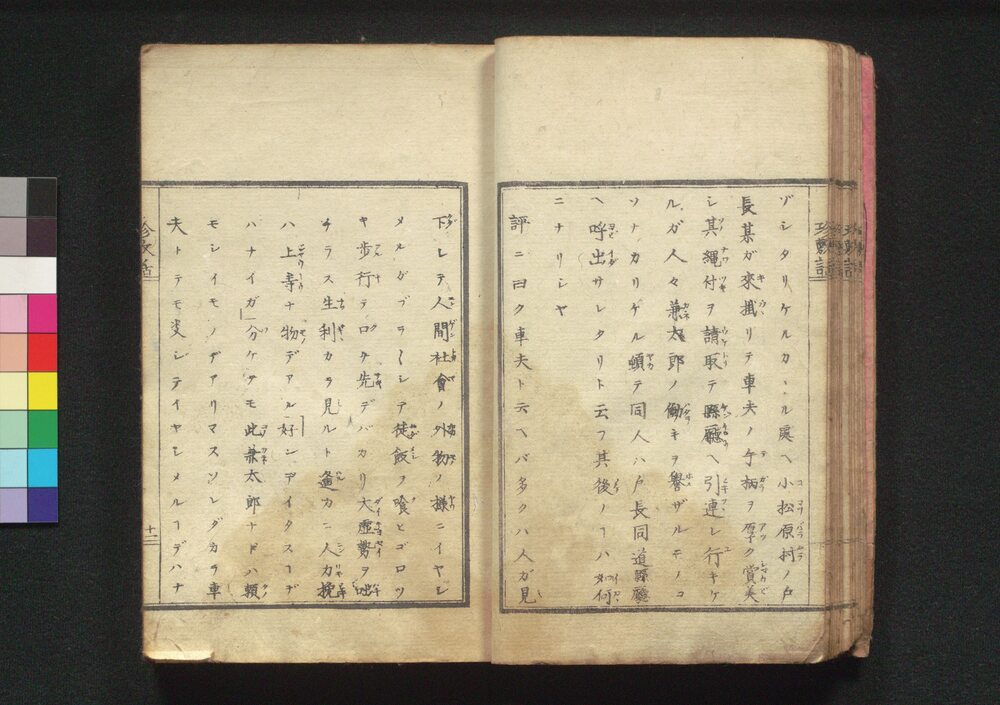 ゾシタリケルカヽル處ヘ小松原村ノ戸
長某ガ來掛リテ車夫ノ手柄ヲ厚ク賞美
シ其縄付ヲ請取テ縣廳ヘ引連レ行キケ
ルガ人々兼太郎ノ働キヲ譽ザルモノコ
ソナカリケル頓テ同人ハ戸長同道縣廳
ヘ呼出サレタリト云フ其後ノヿハ如何
ニナリシヤ
評ニ曰ク車夫ト云ヘバ多クハ人ガ見
下シテ人間社會ノ外物ノ様ニイヤシ
メルガブラ〳〵シテ徒飯ヲ喰とゴロツ
キ歩行テロク先デバカリ大虚勢ヲ吐
チラス生利カヲ見ルト遙カニ人力挽
ハ上等ナ物デアル好ンデイタスヿヂ
ハナイガ一分ケテモ此兼太郎ナドハ頼
モシイモノデアリマスソレダカラ車
夫トテモ決シテイヤシメルヿデハナ
珍聞話
十二